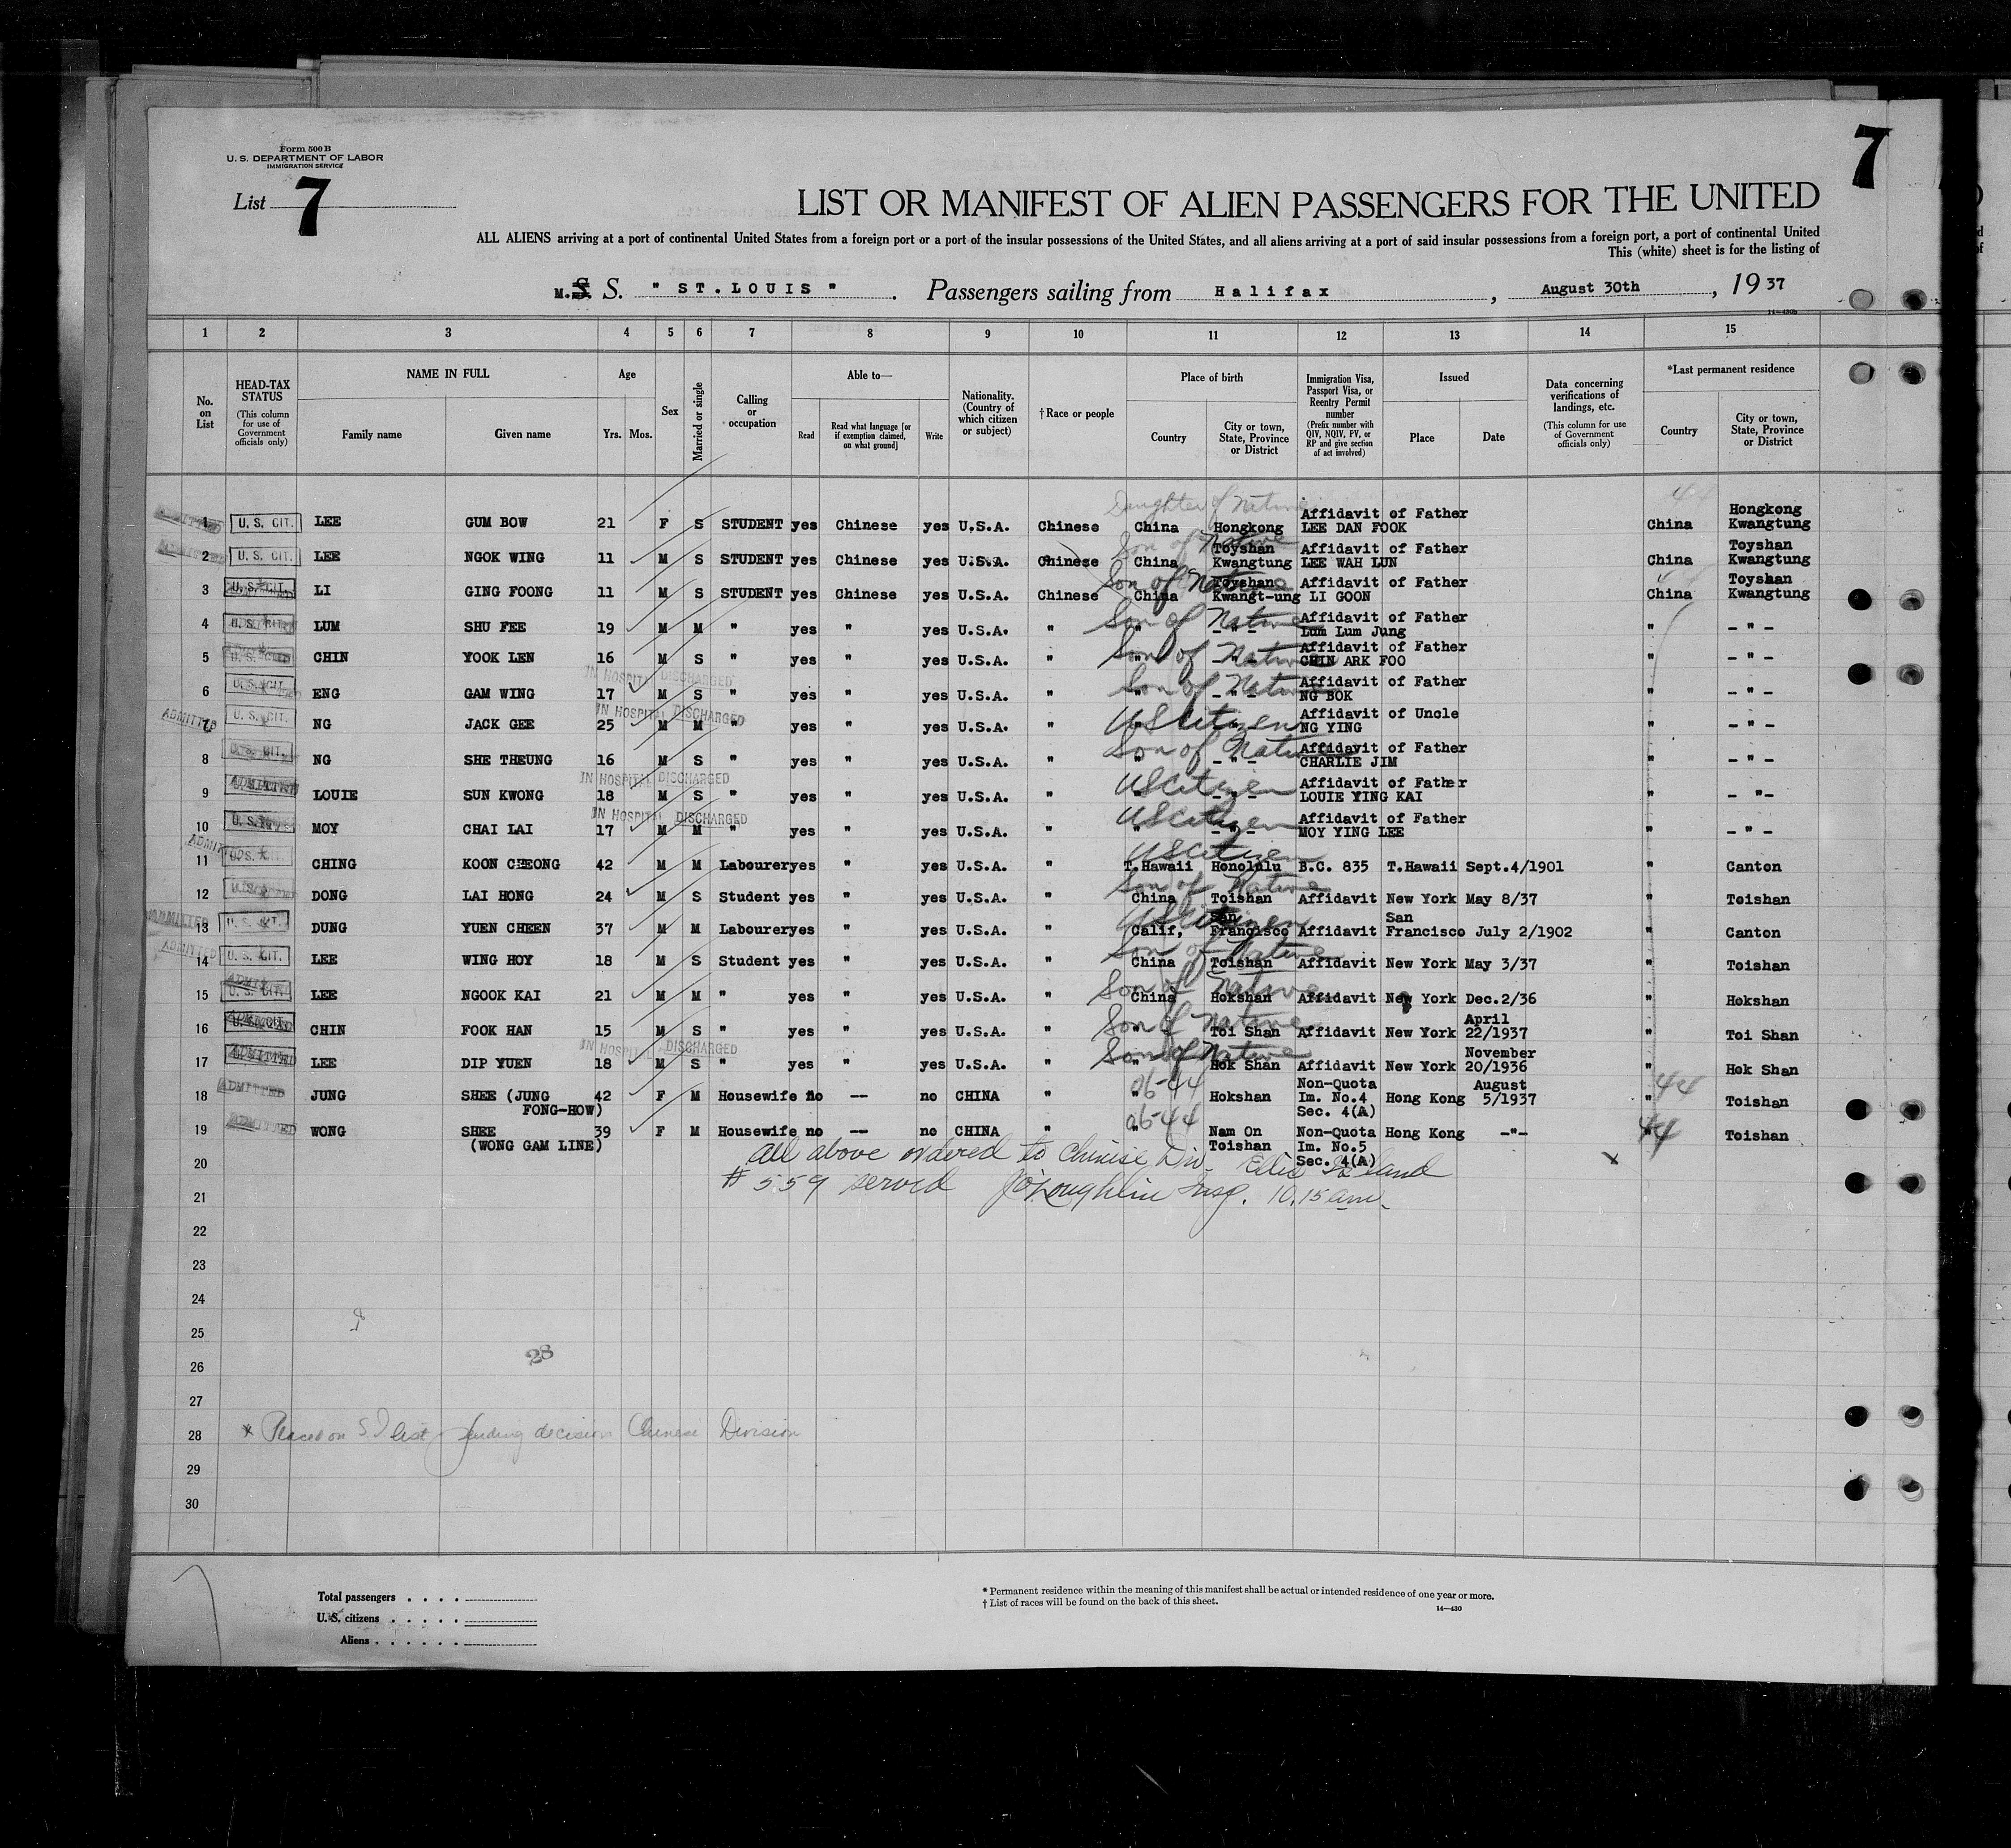 Form 500 B
U. S. DEPARTMENT OF LABOR
IMMIGRATION SERVICE
List 7
7
LIST OR MANIFEST OF ALIEN PASSENGERS FOR THE UNITED
ALL ALIENS arriving at a port of continental United States from a foreign port or a port of the insular possessions of the United States, and all aliens arriving at a port of said insular possessions from a foreign port, a port of continental United
This (white) sheet is for the listing of
M.S. S. " ST.LOUIS " . Passengers sailing from Halifax , August 30th , 19 37
14—430b
1 2 3 4 5 6 7 8 9 10 11 12 13 14 15
No. on List
HEAD-TAX STATUS (This column for use of Government officials only)
NAME IN FULL
Family name Given name
Age
Yrs. Mos.
Sex
Married or single
Calling or occupation
Able to—
Read
Read what language [or if exemption claimed, on what ground]
Write
Nationality. (Country of which citizen or subject)
† Race or people
Place of birth
Country
City or town, State, Province or District
Immigration Visa, Passport Visa, or Reentry Permit number (Prefix number with QIV, NQIV, PV, or RP and give section of act involved)
Issued
Place Date
Data concerning verifications of landings, etc. (This column for use of Government officials only)
*Last permanent residence
Country
City or town, State, Province or District
Daughter of Native 44
ADMITTED 1 U. S. CIT. LEE GUM BOW 21 F S STUDENT yes Chinese yes U.S.A. Chinese China Hongkong Affidavit of Father LEE DAN FOOK China Hongkong Kwangtung
Son of Native
ADMITTED 2 U. S. CIT. LEE NGOK WING 11 M S STUDENT yes Chinese yes U.S.A. Chinese China Toyshan Kwangtung Affidavit of Father LEE WAH LUN China Toyshan Kwangtung
Son of Native
3 U. S. CIT. LI GING FOONG 11 M S STUDENT yes Chinese yes U.S.A. Chinese China Toyshan Kwangt-ung Affidavit of Father LI GOON China Toyshan Kwangtung
Son of Native
4 U. S. CIT. LUM SHU FEE 19 M M " yes " yes U.S.A. " " - " - Affidavit of Father Lum Lum Jung " - " -
Son of Native
5 U. S. CIT. CHIN YOOK LEN 16 M S " yes " yes U.S.A. " " - " - Affidavit of Father CHIN ARK FOO " - " -
IN HOSPITAL DISCHARGED
Son of Native
6 U. S. CIT. ENG GAM WING 17 M S " yes " yes U.S.A. " " - " - Affidavit of Father NG BOK " - " -
IN HOSPITAL DISCHARGED
US Citizen
ADMITTED 7 U. S. CIT. NG JACK GEE 25 M M " yes " yes U.S.A. " " - " - Affidavit of Uncle NG YING " - " -
Son of Native
8 U. S. CIT. NG SHE THEUNG 16 M S " yes " yes U.S.A. " " - " - Affidavit of Father CHARLIE JIM " - " -
IN HOSPITAL DISCHARGED
US Citizen
9 ADMITTED LOUIE SUN KWONG 18 M S " yes " yes U.S.A. " " - " - Affidavit of Father LOUIE YING KAI " - "-
IN HOSPITAL DISCHARGED
US Citizen
10 U. S. MOY CHAI LAI 17 M M " yes " yes U.S.A. " " - " - Affidavit of Father MOY YING LEE " - " -
US Citizen
11 CHING KOON CHEONG 42 M M Labourer yes " yes U.S.A. " T.Hawaii Honolulu B.C. 835 T.Hawaii Sept.4/1901 " Canton
Son of Native
12 DONG LAI HONG 24 M S Student yes " yes U.S.A. " China Toishan Affidavit New York May 8/37 " Toishan
US Citizen
ADMITTED 13 U. S. CIT. DUNG YUEN CHEEN 37 M M Labourer yes " yes U.S.A. " Calif, San Francisco Affidavit San Francisco July 2/1902 " Canton
Son of Native
ADMITTED 14 U. S. CIT. LEE WING HOY 18 M S Student yes " yes U.S.A. " China Toishan Affidavit New York May 3/37 " Toishan
Son of Native
15 U. S. CIT. LEE NGOOK KAI 21 M M " yes " yes U.S.A. " China Hokshan Affidavit New York Dec.2/36 " Hokshan
Son of Native
16 U. S. CIT. CHIN FOOK HAN 15 M S " yes " yes U.S.A. " " Toi Shan Affidavit New York April 22/1937 " Toi Shan
IN HOSPITAL DISCHARGED
Son of Native
17 ADMITTED LEE DIP YUEN 18 M S " yes " yes U.S.A. " " Hok Shan Affidavit New York November 20/1936 " Hok Shan
06-44
18 ADMITTED JUNG SHEE (JUNG FONG-HOW) 42 F M Housewife no -- no CHINA " " Hokshan Non-Quota Im. No.4 Sec. 4(A) Hong Kong August 5/1937 " 44 Toishan
06-44
19 ADMITTED WONG SHEE (WONG GAM LINE) 39 F M Housewife no -- no CHINA " " Nam On Toishan Non-Quota Im. No.5 Sec. 4(A) Hong Kong -"- " 44 Toishan
20 all above ordered to Chinese Div. Ellis Island x
21 # 559 served J O'Loughlin Insp. 10.15 am.
22
23
24
25
26 28
27
28 x Placed on S.I list pending decision Chinese Division
29
30
Total passengers . . . .
U. S. citizens . . . . .
Aliens . . . . . .
* Permanent residence within the meaning of this manifest shall be actual or intended residence of one year or more.
† List of races will be found on the back of this sheet.
14—430